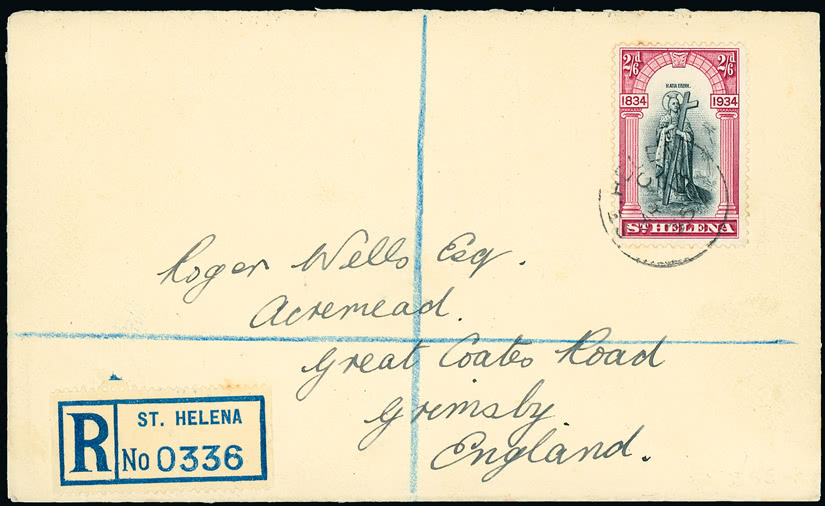 2/6d 2/6d
1834 1934
ST HELENA
Roger Wells Esq.
Acremead.
Great Coates Road
Grimsby
England.
R
ST. HELENA
No 0336